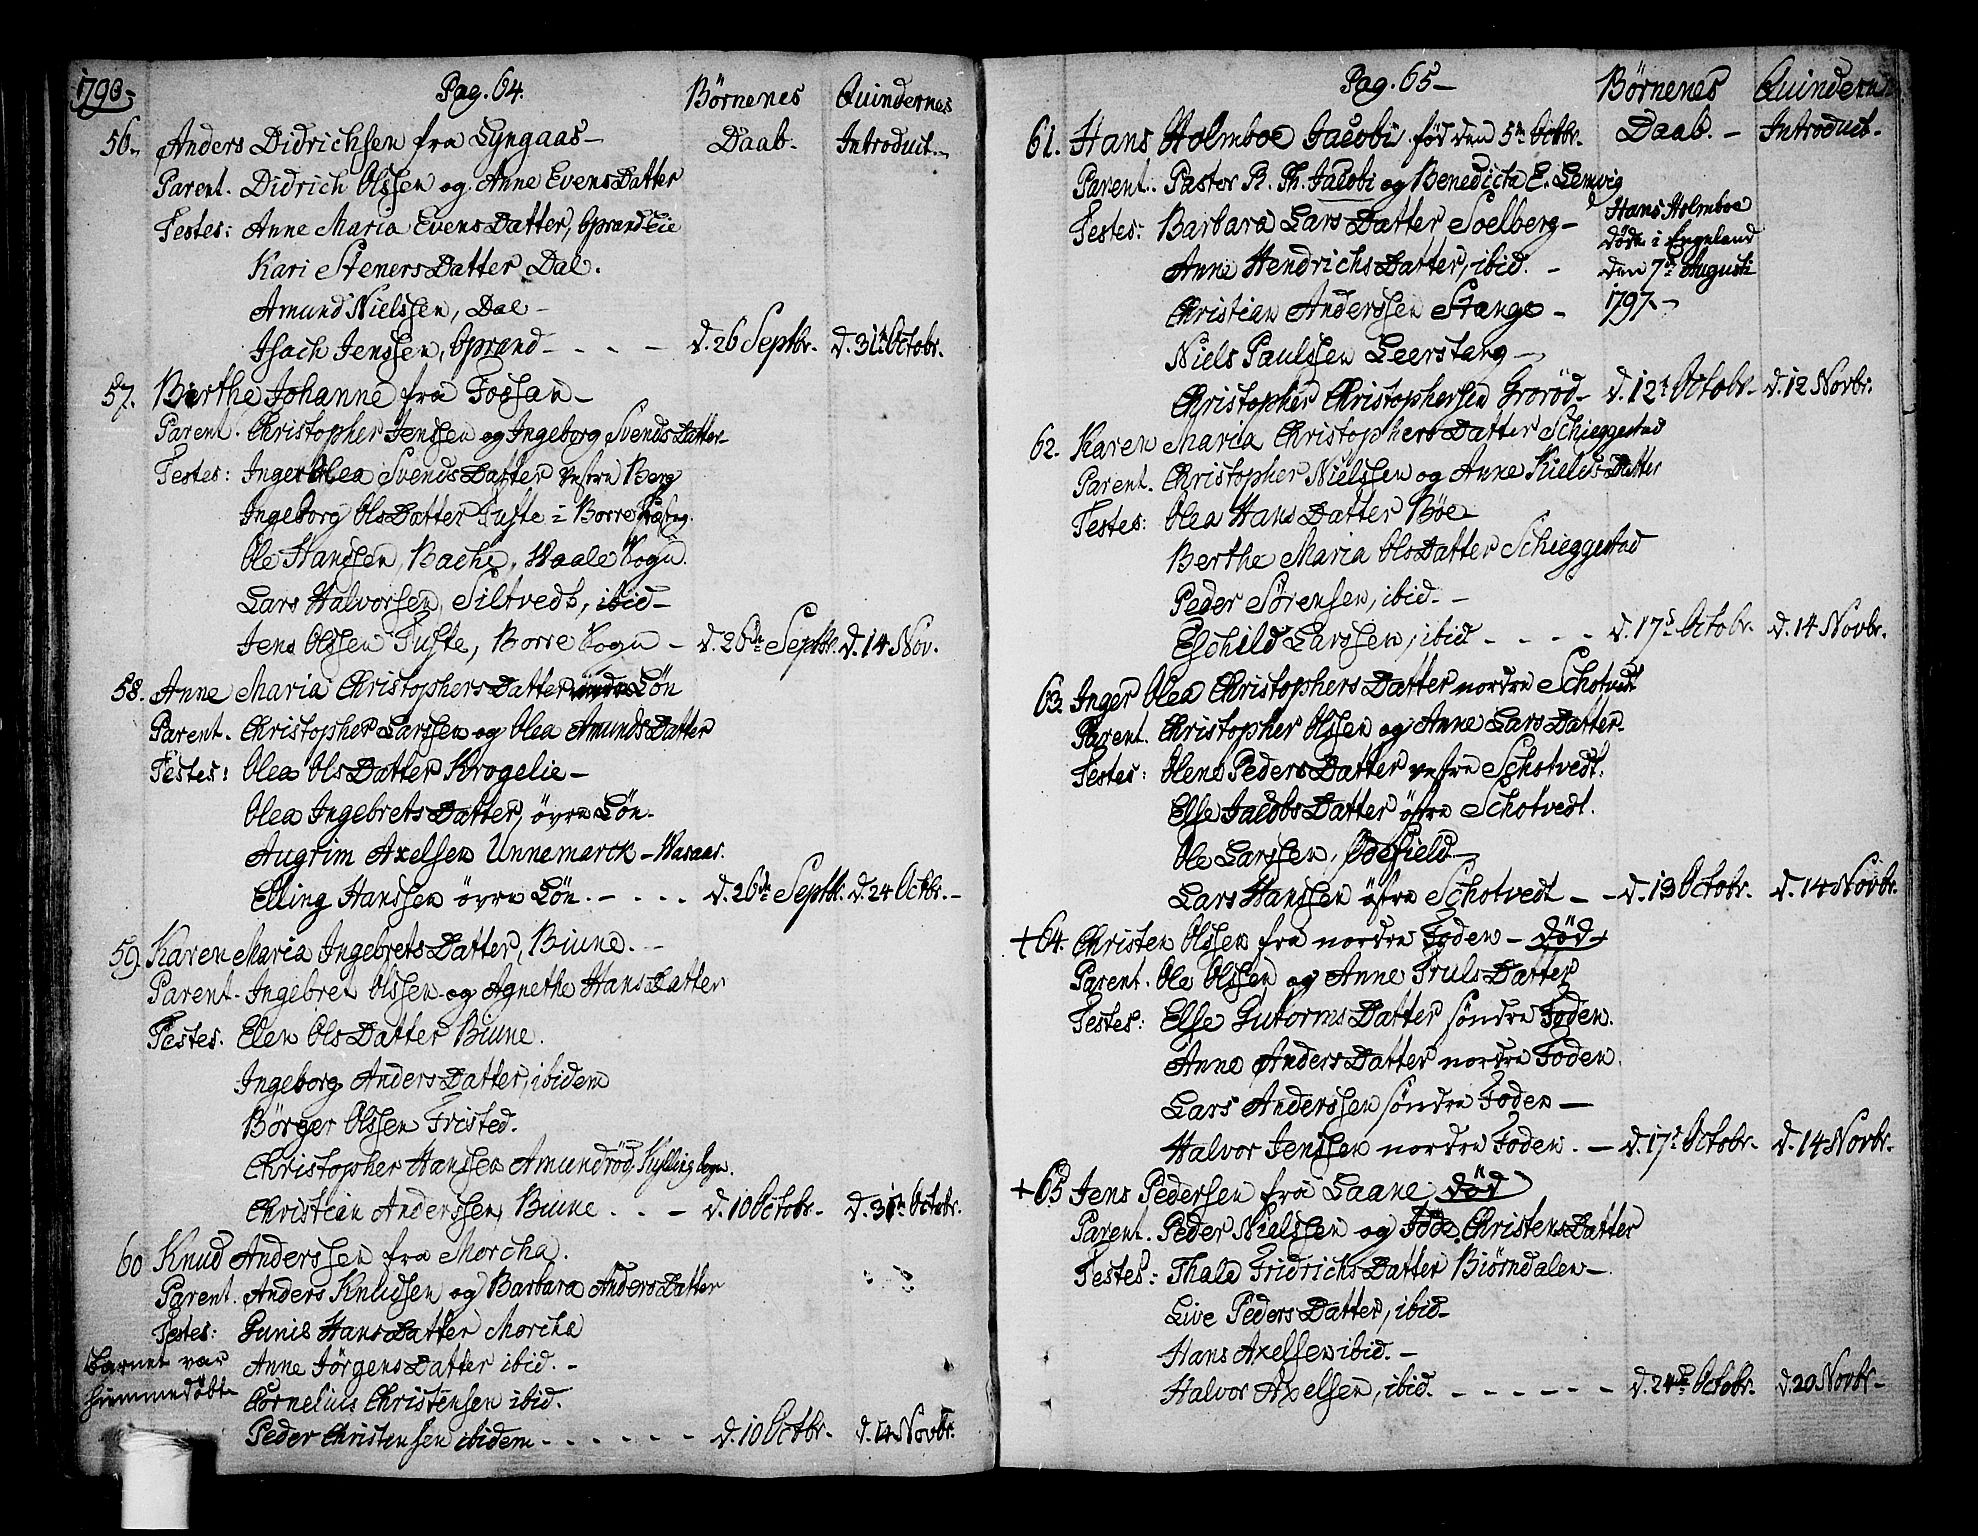 Pag. 64.
Börnenes Quindernes
56. Anders Didrichsen fra Lyngaas- Daab. Introduct.
Parent. Didrich Olssen og Anne EvensDatter
Testes: Anne Maria EvensDatter,
Kari StenersDatter Dal.
Amund Nielssen, Dal-
Isach Jenssen, - - - d. 26 Septbr. d. 31te Octobr.
57. Berthe Johanne fra Fossan-
Parent. Christopher Jenssen og Ingeborg SvendsDatter-
Testes: Inger Olea SvendsDatter vestre Berg
Ingeborg OlsDatter Tufte i Borre
Ole Hanssen, Bache, Vaale Sogn.
Lars Halvorsen, Siltvedt, ibid-
Jens Olssen Tufte, Borre Sogn - d. 26te Septbr. d. 14 Nov.
58. Anne Maria ChristophersDatter Løn
Parent. Christopher Larssen og Olea AmundsDatter
Testes: Olea OlsDatter Krogelie-
Olea IngebretsDatter, övre Løn-
Augrim Axelsen Unnemarck-
Elling Hanssen övre Løn. - . . . d. 26te Septbr. d. 24 Octbr.-
59. Karen Maria IngebretsDatter, Biune.-
Parent- Ingebret Olssen og Agnethe HansDatter
Testes. Elen OlsDatter Biune.
Ingeborg AndersDatter, ibidem
Börger Olssen Fristed.
Christopher Hanssen Amundröd,
Christian Anderssen, Biune . . - d. 10 Octobr. d. 31te Octobr.
60 Knud Anderssen fra Morcha.
Parent. Anders Knudsen og Barbara AndersDatter
Testes: Gunil HansDatter Morcha
Barnet var Anne JörgensDatter ibid.-
hiemmedöbt Cornelius Christensen ibid.
Peder Christensen ibidem - - - - - - d. 10 Octbr. d. 14 Novbr.
Pag. 65-
Börnenes
61. Hans Holmboe Jacobi, fød den 5te Octbr. Daab.- Introduct-
Parent. Pastor R. Th. Jacobi og Benedicta E. Lemvig
Testes: Barbara LarsDatter Soelberg-
Hans Holmboe
døde i Engeland
den 7de Augusti
1797.-
Anne HendrichsDatter, ibid.-
Christian Anderssen Stange-
Niels Paulssen Leerstang-
Christopher Christophersen Grorød- d. 12te Octobr- d. 12 Novbr.
62. Karen Maria ChristophersDatter Schieggestad
Parent. Christopher Nielssen og Anne KieldsDatter
Testes: Olea HansDatter Bøe
Berthe Maria OlsDatter Schieggestad
Peder Sørensen, ibid.-
Eschild Larssen, ibid - - - - d. 17de Octobr. d. 14 Novbr.
63. Inger Olea ChristophersDatter nordre Schotvedt
Parent. Christopher Olssen og Anne LarsDatter-
Testes: Olene PedersDatter vestre Schotvedt.
Else JacobsDatter östre Schotvedt.
Ole Larssen, Ødefield-
Lars Hanssen östre Schotvedt - - d. 13 Octobr. d. 14 Novbr.
+ 64. Christen Olssen fra nordre Foden - død-
Parent. Ole Olssen og Anne TrulsDatter
Testes: Else GutormsDatter søndre Foden.
Anne AndersDatter nordre Foden.
Lars Anderssen søndre Foden-
Halvor Jenssen nordre Foden. - d. 17de Octobr. d. 14 Novbr.
+ 65 Jens Pedersen fra Laane, død
Parent. Peder Nielssen og ChristensDatter
Testes: Thale FridrichsDatter Biørndalen-
Live PedersDatter, ibid-
Hans Axelsen ibid.-
Halvor Axelsen, ibid. - - - - - - d. 24de Octobr. d. 20 Novbr-